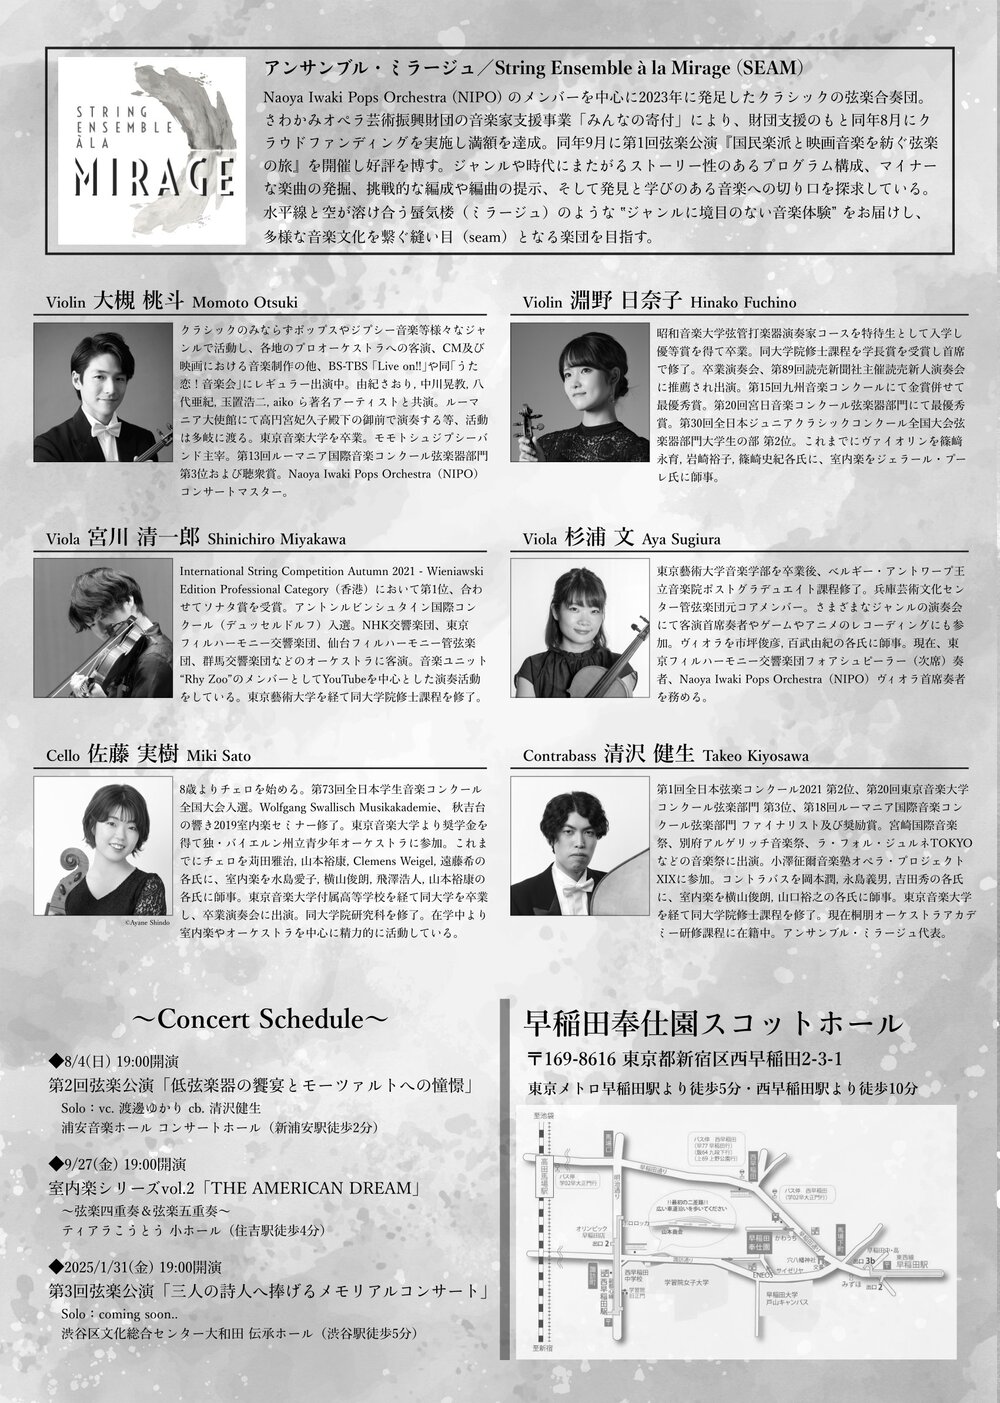 STRING
ENSEMBLE
ÀLA
MIRAGE
アンサンブル・ミラージュ／String Ensemble à la Mirage (SEAM)
Naoya Iwaki Pops Orchestra (NIPO) のメンバーを中心に2023年に発足したクラシックの弦楽合奏団。
さわかみオペラ芸術振興財団の音楽家支援事業「みんなの寄付」により、財団支援のもと同年8月にク
ラウドファンディングを実施し満額を達成。同年9月に第1回弦楽公演『国民楽派と映画音楽を紡ぐ弦楽
の旅』を開催し好評を博す。ジャンルや時代にまたがるストーリー性のあるプログラム構成、マイナー
な楽曲の発掘、挑戦的な編成や編曲の提示、そして発見と学びのある音楽への切り口を探求している。
水平線と空が溶け合う蜃気楼（ミラージュ）のような “ジャンルに境目のない音楽体験” をお届けし、
多様な音楽文化を繋ぐ縫い目（seam）となる楽団を目指す。
Violin 大槻 桃斗 Momoto Otsuki
クラシックのみならずポップスやジプシー音楽等様々なジャ
ンルで活動し、各地のプロオーケストラへの客演、CM及び
映画における音楽制作の他、BS-TBS「Live on!!」や同「うた
恋！音楽会」にレギュラー出演中。由紀さおり, 中川晃教, 八
代亜紀, 玉置浩二, aiko ら著名アーティストと共演。ルーマ
ニア大使館にて高円宮妃久子殿下の御前で演奏する等、活動
は多岐に渡る。東京音楽大学を卒業。モモトシュジプシーバ
ンド主宰。第13回ルーマニア国際音楽コンクール弦楽器部門
第3位および聴衆賞。Naoya Iwaki Pops Orchestra（NIPO）
コンサートマスター。
Violin 淵野 日奈子 Hinako Fuchino
昭和音楽大学弦管打楽器演奏家コースを特待生として入学し
優等賞を得て卒業。同大学院修士課程を学長賞を受賞し首席
で修了。卒業演奏会、第89回読売新聞社主催読売新人演奏会
に推薦され出演。第15回九州音楽コンクールにて金賞併せて
最優秀賞。第20回宮日音楽コンクール弦楽器部門にて最優秀
賞。第30回全日本ジュニアクラシックコンクール全国大会弦
楽器部門大学生の部 第2位。これまでにヴァイオリンを篠崎
永育, 岩崎裕子, 篠崎史紀各氏に、室内楽をジェラール・プー
レ氏に師事。
Viola 宮川 清一郎 Shinichiro Miyakawa
International String Competition Autumn 2021 - Wieniawski
Edition Professional Category（香港）において第1位、合わ
せてソナタ賞を受賞。アントンルビンシュタイン国際コン
クール（デュッセルドルフ）入選。NHK交響楽団、東京
フィルハーモニー交響楽団、仙台フィルハーモニー管弦楽
団、群馬交響楽団などのオーケストラに客演。音楽ユニット
“Rhy Zoo”のメンバーとしてYouTubeを中心とした演奏活動
をしている。東京藝術大学を経て同大学院修士課程を修了。
Viola 杉浦 文 Aya Sugiura
東京藝術大学音楽学部を卒業後、ベルギー・アントワープ王
立音楽院ポストグラデュエイト課程修了。兵庫芸術文化セン
ター管弦楽団元コアメンバー。さまざまなジャンルの演奏会
にて客演首席奏者やゲームやアニメのレコーディングにも参
加。ヴィオラを市坪俊彦, 百武由紀の各氏に師事。現在、東
京フィルハーモニー交響楽団フォアシュピーラー（次席）奏
者、Naoya Iwaki Pops Orchestra（NIPO）ヴィオラ首席奏者
を務める。
Cello 佐藤 実樹 Miki Sato
©Ayane Shindo
8歳よりチェロを始める。第73回全日本学生音楽コンクール
全国大会入選。Wolfgang Swallisch Musikakademie、 秋吉台
の響き2019室内楽セミナー修了。東京音楽大学より奨学金を
得て独・バイエルン州立青少年オーケストラに参加。これま
でにチェロを苅田雅治, 山本裕康, Clemens Weigel, 遠藤希の
各氏に、室内楽を水島愛子, 横山俊朗, 飛澤浩人, 山本裕康の
各氏に師事。東京音楽大学付属高等学校を経て同大学を卒業
し、卒業演奏会に出演。同大学院研究科を修了。在学中より
室内楽やオーケストラを中心に精力的に活動している。
Contrabass 清沢 健生 Takeo Kiyosawa
第1回全日本弦楽コンクール2021 第2位、第20回東京音楽大学
コンクール弦楽部門 第3位、第18回ルーマニア国際音楽コン
クール弦楽部門 ファイナリスト及び奨励賞。宮崎国際音楽
祭、別府アルゲリッチ音楽祭、ラ・フォル・ジュルネTOKYO
などの音楽祭に出演。小澤征爾音楽塾オペラ・プロジェクト
XIXに参加。コントラバスを岡本潤, 永島義男, 吉田秀の各氏
に、室内楽を横山俊朗, 山口裕之の各氏に師事。東京音楽大学
を経て同大学院修士課程を修了。現在桐朋オーケストラアカデ
ミー研修課程に在籍中。アンサンブル・ミラージュ代表。
～Concert Schedule～
◆8/4(日) 19:00開演
第2回弦楽公演「低弦楽器の饗宴とモーツァルトへの憧憬」
Solo：vc. 渡邊ゆかり cb. 清沢健生
浦安音楽ホール コンサートホール（新浦安駅徒歩2分）
◆9/27(金) 19:00開演
室内楽シリーズvol.2「THE AMERICAN DREAM」
～弦楽四重奏＆弦楽五重奏～
ティアラこうとう 小ホール（住吉駅徒歩4分）
◆2025/1/31(金) 19:00開演
第3回弦楽公演「三人の詩人へ捧げるメモリアルコンサート」
Solo：coming soon..
渋谷区文化総合センター大和田 伝承ホール（渋谷駅徒歩5分）
早稲田奉仕園スコットホール
〒169-8616 東京都新宿区西早稲田2-3-1
東京メトロ早稲田駅より徒歩5分・西早稲田駅より徒歩10分
至池袋
馬場口
バス停 西早稲田
(早77 早稲田行)
(飯64 九段下行)
(上69 上野公園行)
西早稲田
早稲田通り
高田馬場駅
バス停
学02早大正門行
明治通り
バス停 西早稲田
(学02早大正門行)
!!最初の二差路!!
広い車道沿いを歩いてください
山本商会
オリンピック
早稲田店
出口 2
早稲田
奉仕園
かわうち
馬場下町
早稲田中・高
東西線
早稲田駅
出口 3b
穴八幡神社
文
サイゼリヤ
ENEOS
みずほ
出口 2
西早稲田
中学校
学習院女子大学
学習院
女正門
西早稲田駅
早稲田大学
戸山キャンパス
至新宿